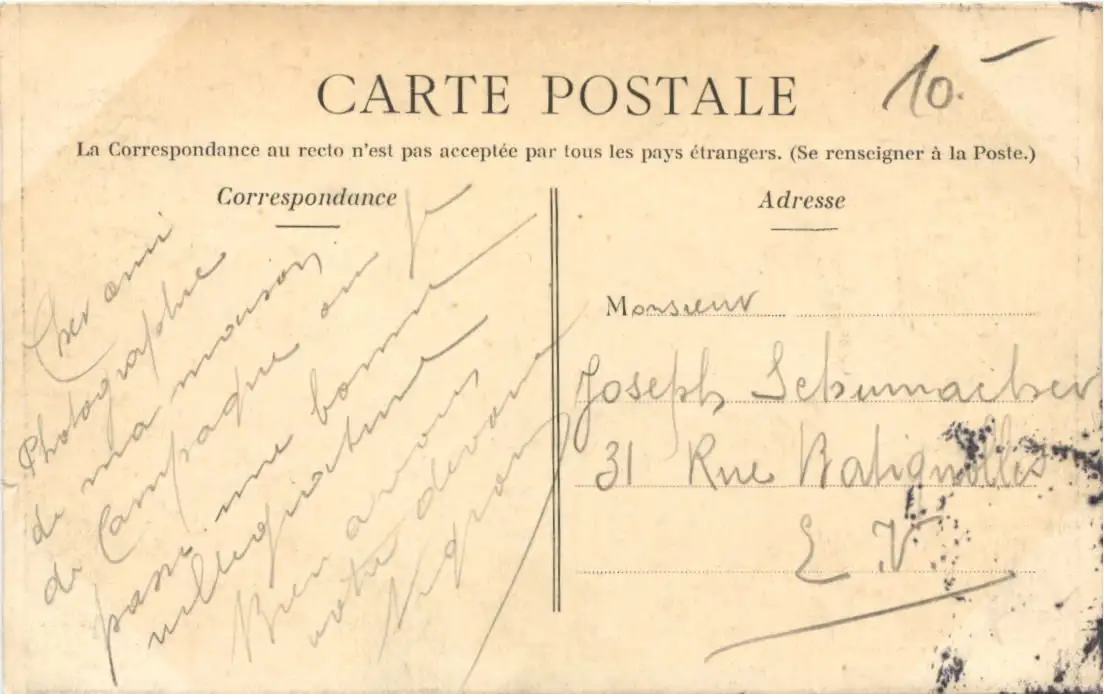 CARTE POSTALE
10.-
La Correspondance au recto n'est pas acceptée par tous les pays étrangers. (Se renseigner à la Poste.)
Correspondance
Cher ami
Photographie
de ma maison
de Campagne ou je
passe une bonne
villegiature
Bien a vous
votre devoué
Adresse
Monsieur
Joseph Schumacher
31 Rue Batignolles
E. V.